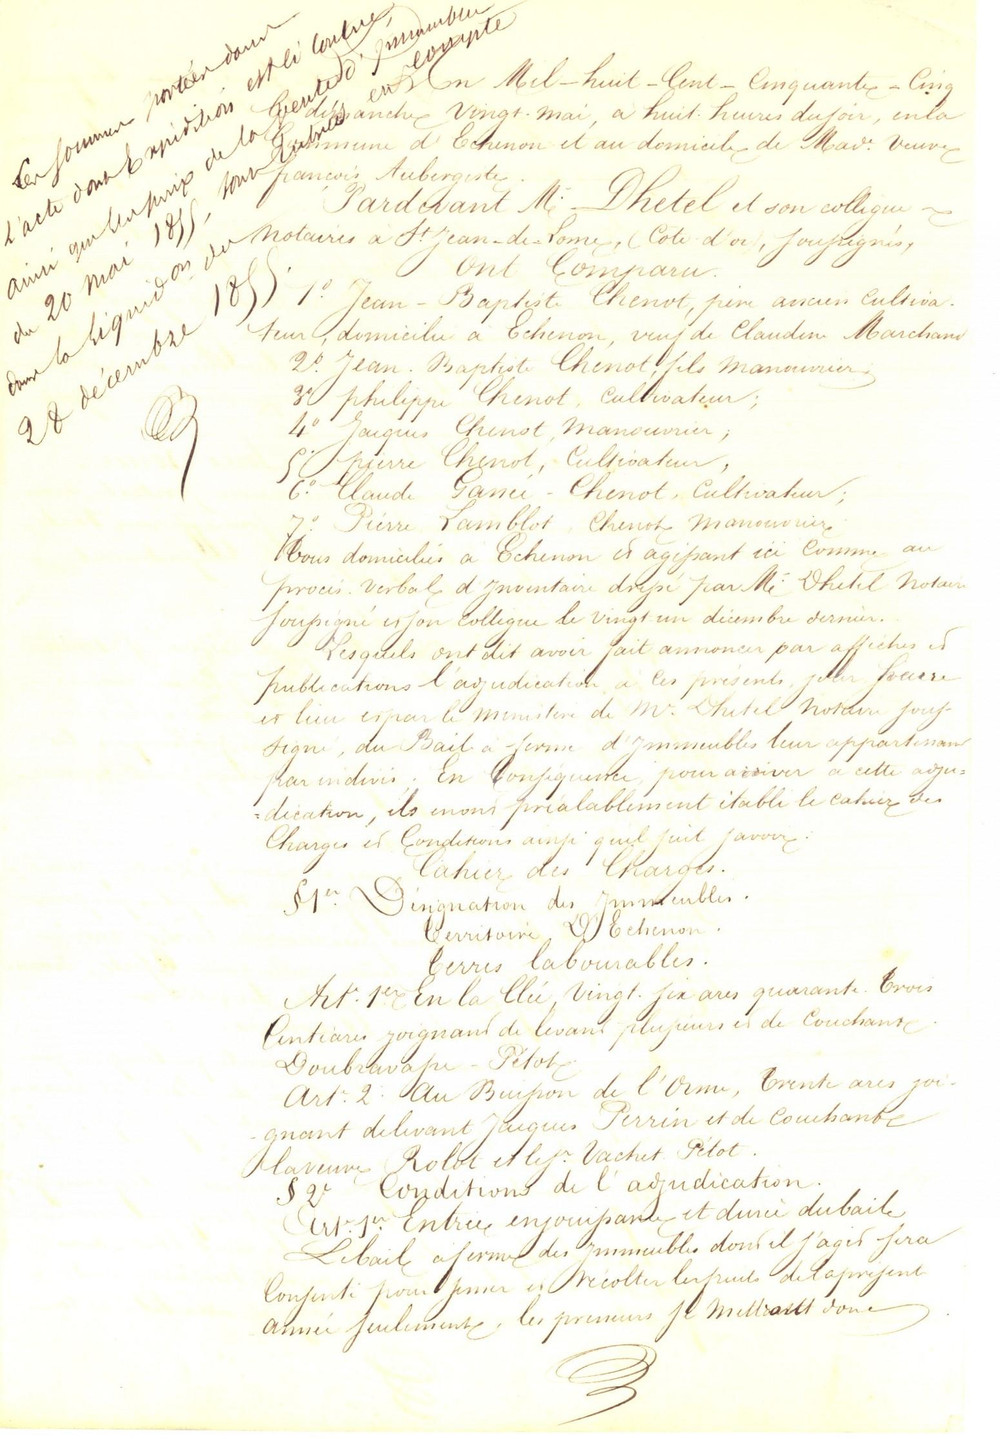 Les sommes portées dans
l'acte dont expédition est ci contre
ainsi que les prix de la vente d'immeubles
du 20 mai 1855, sont entrés en compte
dans la liquidon du
28 décembre 1855.
L'an Mil-huit-Cent-Cinquante-Cinq
dimanche vingt mai, à huit heures du soir, en la
Commune d'Echenon et au domicile de Made Veuve
françois Aubergiste.
Pardevant Me Dhetel et son collègue
Notaires à St Jean-de-Losne, (Cote d'or), soussignés,
Ont Comparu.
1o Jean-Baptiste Chenot, père ancien Cultiva-
teur, domicilié à Echenon, veuf de Claudine Marchand
2o Jean-Baptiste Chenot, fils Manouvrier
3o philippe Chenot, cultivateur;
4o Jacques Chenot, Manouvrier;
5o pierre Chenot, Cultivateur;
6o Claude Ganée-Chenot, cultivateur;
7o Pierre Lamblot-Chenot manouvrier
Tous domiciliés à Echenon et agissant ici comme au
procès-verbal d'Inventaire dressé par Me Dhetel Notaire
soussigné et son collègue le vingt un décembre dernier.
Lesquels ont dit avoir fait annoncer par affiches et
publications l'adjudication à ces présents jour heure
et lieu et par le ministère de Me Dhetel Notaire sous-
signé, du Bail à ferme d'Immeubles leur appartenant
par indivis. En Conséquence, pour arriver à cette adju-
=dication, ils en ont préalablement établi le cahier des
Charges et Conditions ainsi qu'il suit savoir:
Cahier des Charges.
§1er Désignation des Immeubles.
Territoire D'Echenon.
Terres labourables.
Art. 1er En la Clée, Vingt-six ares quarante-trois
Centiares joignant de levant plusieurs et de Couchant
Doubravape-Pétot
Art. 2 Au Buisson de l'Orme, trente ares joi-
-gnant de levant Jacques Perrin et de couchant
la veuve Rolot et le sr Vachet Pétot.
§ 2e Conditions de l'adjudication.
Art. 1er Entrée en jouissance et durée du bail
Le bail à ferme des Immeubles dont il s'agit sera
Consenti pour semer et récolter les fruits de la présent
année seulement, les preneurs se mettront donc